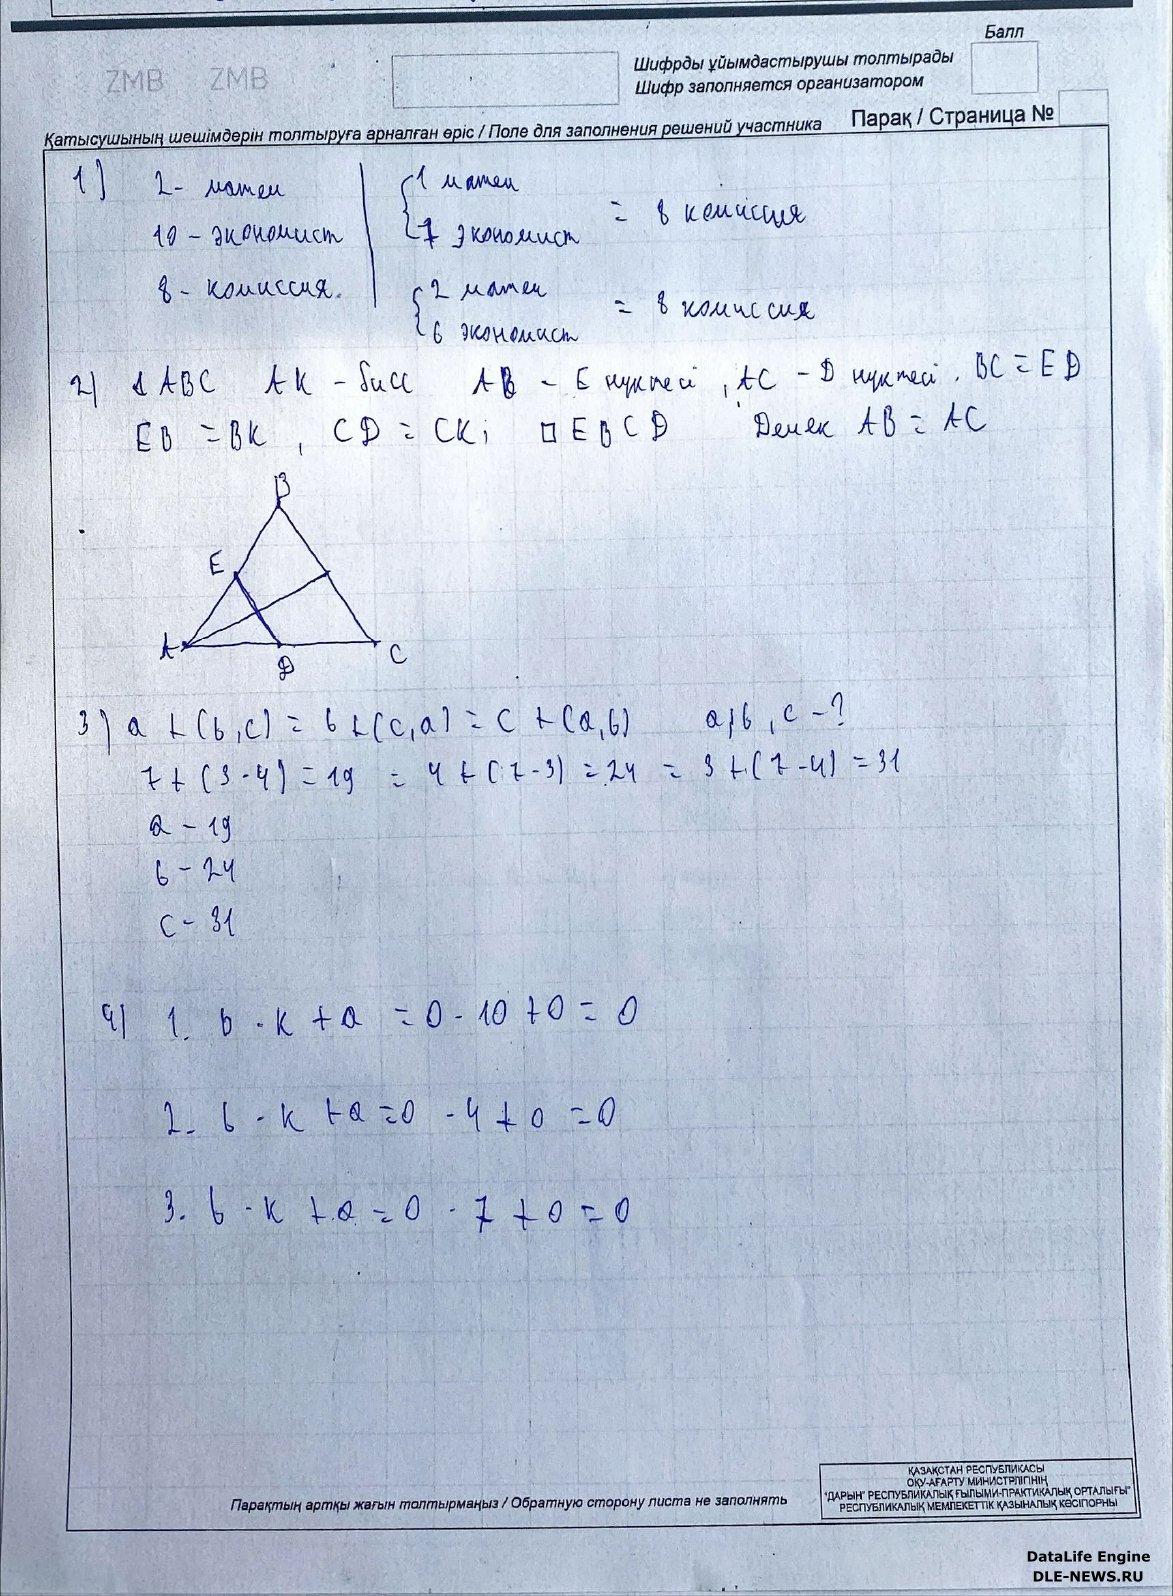 Балл
ZMB ZMB
Шифрды ұйымдастырушы толтырады
Шифр заполняется организатором
Парақ / Страница №
Қатысушының шешімдерін толтыруға арналған өріс / Поле для заполнения решений участника
1) 2 - матем
10 - экономист
8 - комиссия.
1 матем
7 экономист = 8 комиссия
2 матем
6 экономист = 8 комиссия
2) Δ ABC AK - бисс AB - E нүктесі, AC - D нүктесі. BC = ED
EB = BK, CD = CK; □ EBCD Демек AB = AC
B
E
A
D
C
3) a + (b, c) = b + (c, a) = c + (a, b) a, b, c - ?
7 + (3 · 4) = 19 = 4 + (7 · 3) = 24 = 3 + (7 · 4) = 31
a - 19
b - 24
c - 31
4) 1. b · k + a = 0 · 10 + 0 = 0
2. b · k + a = 0 · 4 + 0 = 0
3. b · k + a = 0 · 7 + 0 = 0
Парақтың артқы жағын толтырмаңыз / Обратную сторону листа не заполнять
ҚАЗАҚСТАН РЕСПУБЛИКАСЫ
ОҚУ-АҒАРТУ МИНИСТРЛІГІНІҢ
"ДАРЫН" РЕСПУБЛИКАЛЫҚ ҒЫЛЫМИ-ПРАКТИКАЛЫҚ ОРТАЛЫҒЫ"
РЕСПУБЛИКАЛЫҚ МЕМЛЕКЕТТІК ҚАЗЫНАЛЫҚ КӘСІПОРНЫ
DataLife Engine
DLE-NEWS.RU